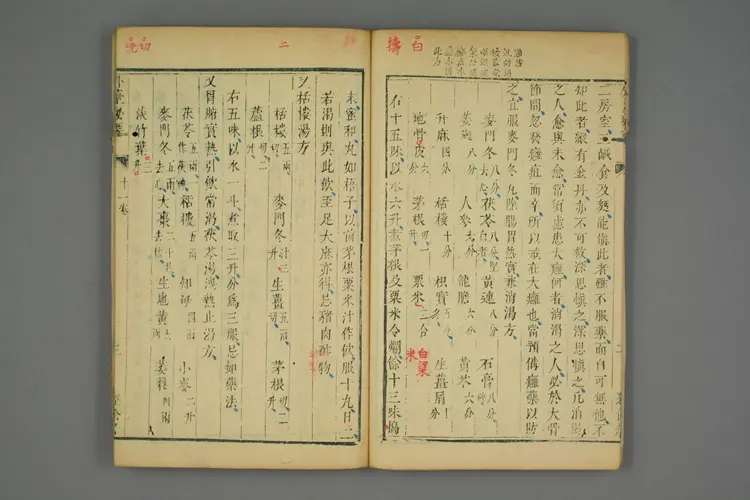 擣 白
二房室三鹹食及麪能慎此者雖不服藥而自可無他不
如此者縱有金丹亦不可救深思慎之深思慎之凡消渴
之人愈與未愈常須慮患大癰何者消渴之人必於大骨
節間忽發癰疽而卒所以戒在大癰也當預備癰藥以防
之止服麥門冬丸除腸胃熱實兼消渴方
麥門冬八分去心 茯苓八分堅白者 黃連八分 石膏八分碎
萎蕤八分 人參六分 龍膽六分 黃芩六分
升麻四分 栝樓十分 枳實五分 生薑屑十分
地骨皮六分 茅根切一升 粟米二合 白粱米
右十五味以水六升煮茅根及粟米令爛餘十三味擣
二
切 洗
末蜜和丸如梧子以前茅根粟米汁作飲服十丸日二
若渴則與此飲至足大麻亦得忌豬肉酢物
又栝樓湯方
栝樓切五兩 麥門冬汁三升 生薑五兩切 茅根切二升
蘆根切二升
右五味以水一斗煮取三升分爲三服忌如藥法
又胃腑實熱引飲常渴茯苓湯洩熱止渴方
茯苓五兩一作茯神 栝樓五兩 知母四兩 小麥二升
麥門冬五兩去心 大棗二十枚去核 生地黃六兩 萎蕤四兩
淡竹葉三升
十一卷